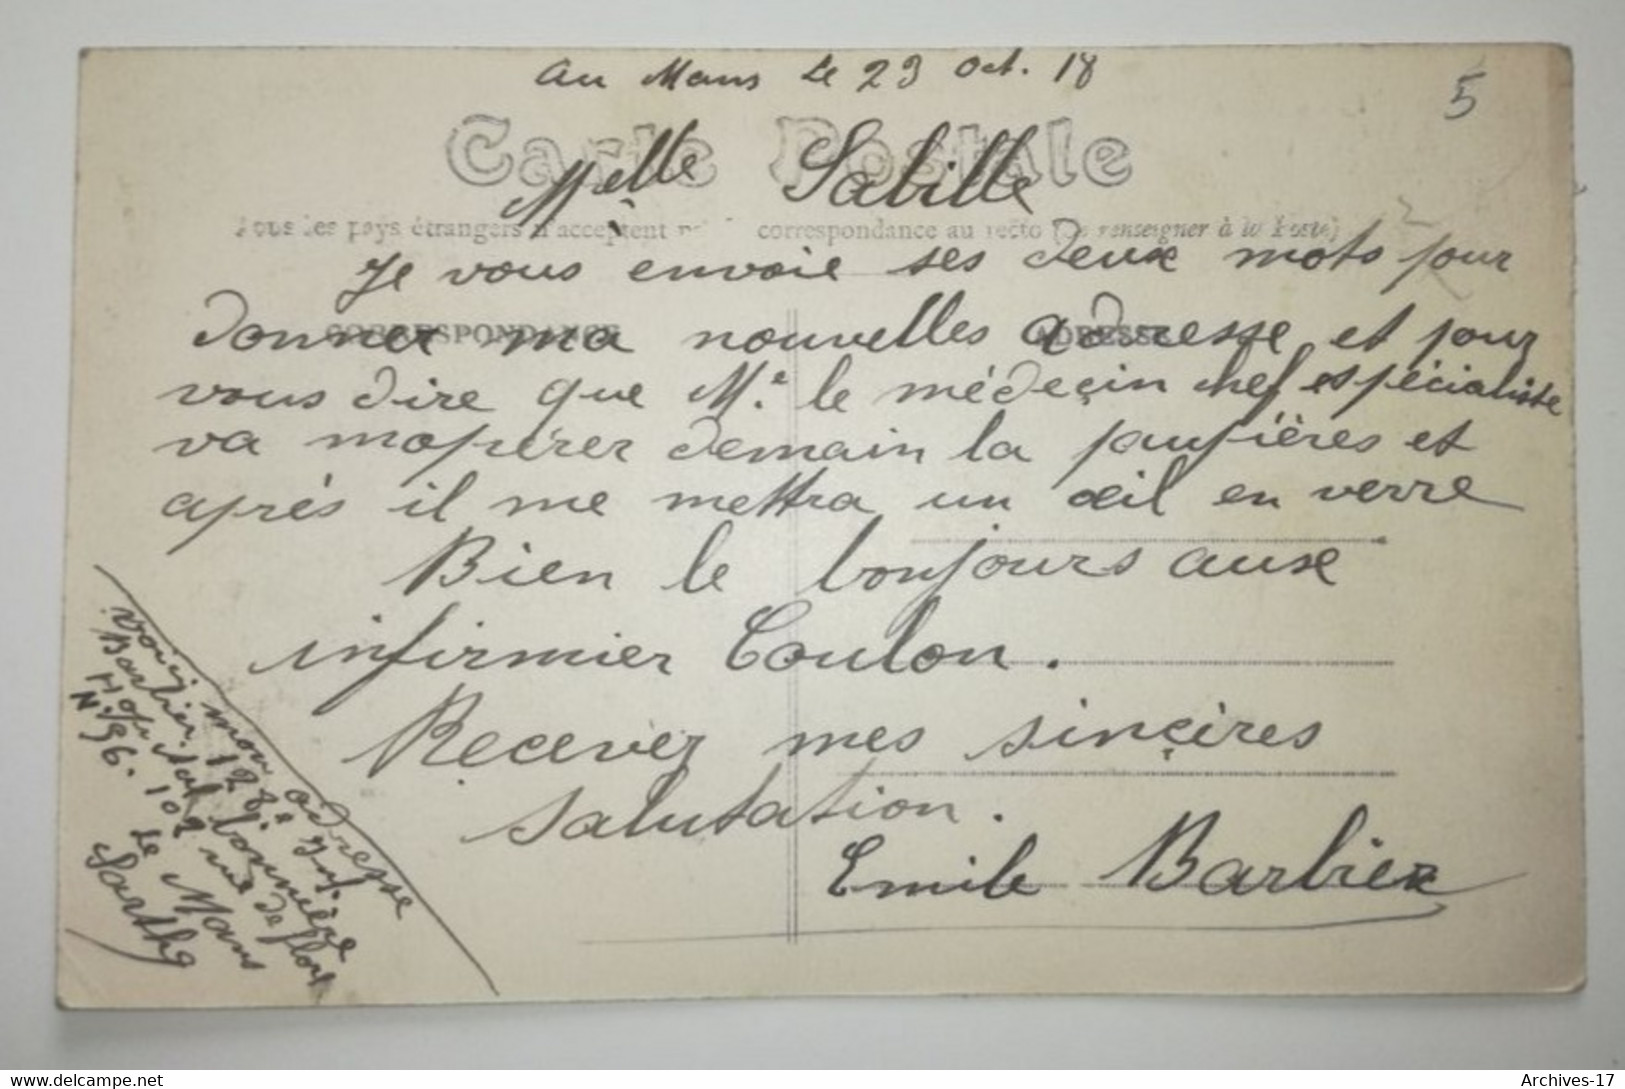 au Mans le 23 oct. 18
5
Carte Postale
Melle Sabille
Tous les pays étrangers n'acceptent pas la correspondance au recto (Se renseigner à la Poste)
Je vous envoie ses deux mots pour
CORRESPONDANCE
ADRESSE
donner ma nouvelles adresse et pour
vous dire que Mr. le médeçin chef espécialiste
va mopérer demain la paupières et
après il me mettra un œil en verre
Bien le bonjours ause
infirmier Coulon.
Recever mes sinçères
salutation.
Emile Barbier
voici mon adresse
Barbier 128e
Hopital
N. 96. 102 rue de
le Mans
Sarthe
Archives-17
delcampe.net